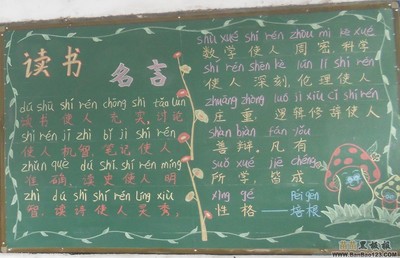 读书
名言
dú shū shí rén chōng shi tǎo lùn
读书使人充实,讨论
shí rén jī zhì bǐ jì shí rén
使人机智,笔记使人
zhǔn què dú shǐ shí rén míng
准确,读史使人明
zhì dú shī shí rén líng xiù
智,读诗使人灵秀,
shù xué shí rén zhōu mì kē xué
数学使人周密,科学
shí rén shēn kè lún lǐ shí rén
使人深刻,伦理使人
zhuāng zhòng luó jí xiū cí shí rén
庄重,逻辑修辞使人
shàn biàn fán yǒu
善辩。凡有
suǒ xué jiē chéng
所学皆成
xìng gé péi gēn
性格——培根
黑板报
www.BanBao123.com